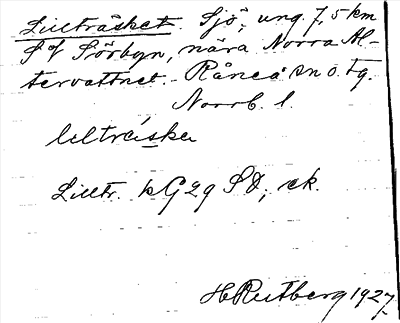 Lillträsket. Sjö, ung. 7,5 km
S V Sörbyn, nära Norra Al-
tervattnet. - Råneå sn o. tg.
Norrb. l.
lilträske
Lilltr. kG29 SO, ek.
H Rutberg 1927.